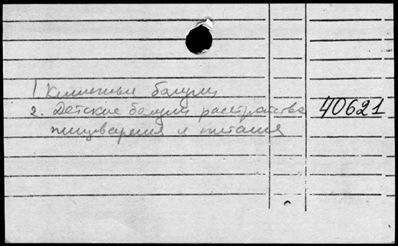 1
2. Детские болезни расстройства 40621
пищеварения и питания